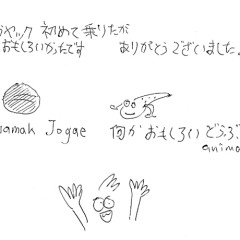 カヤック 初めて乗りたが
おもしろいかったです ありがとうございました。
amah Jogae 何か おもしろい どうぶ
anima